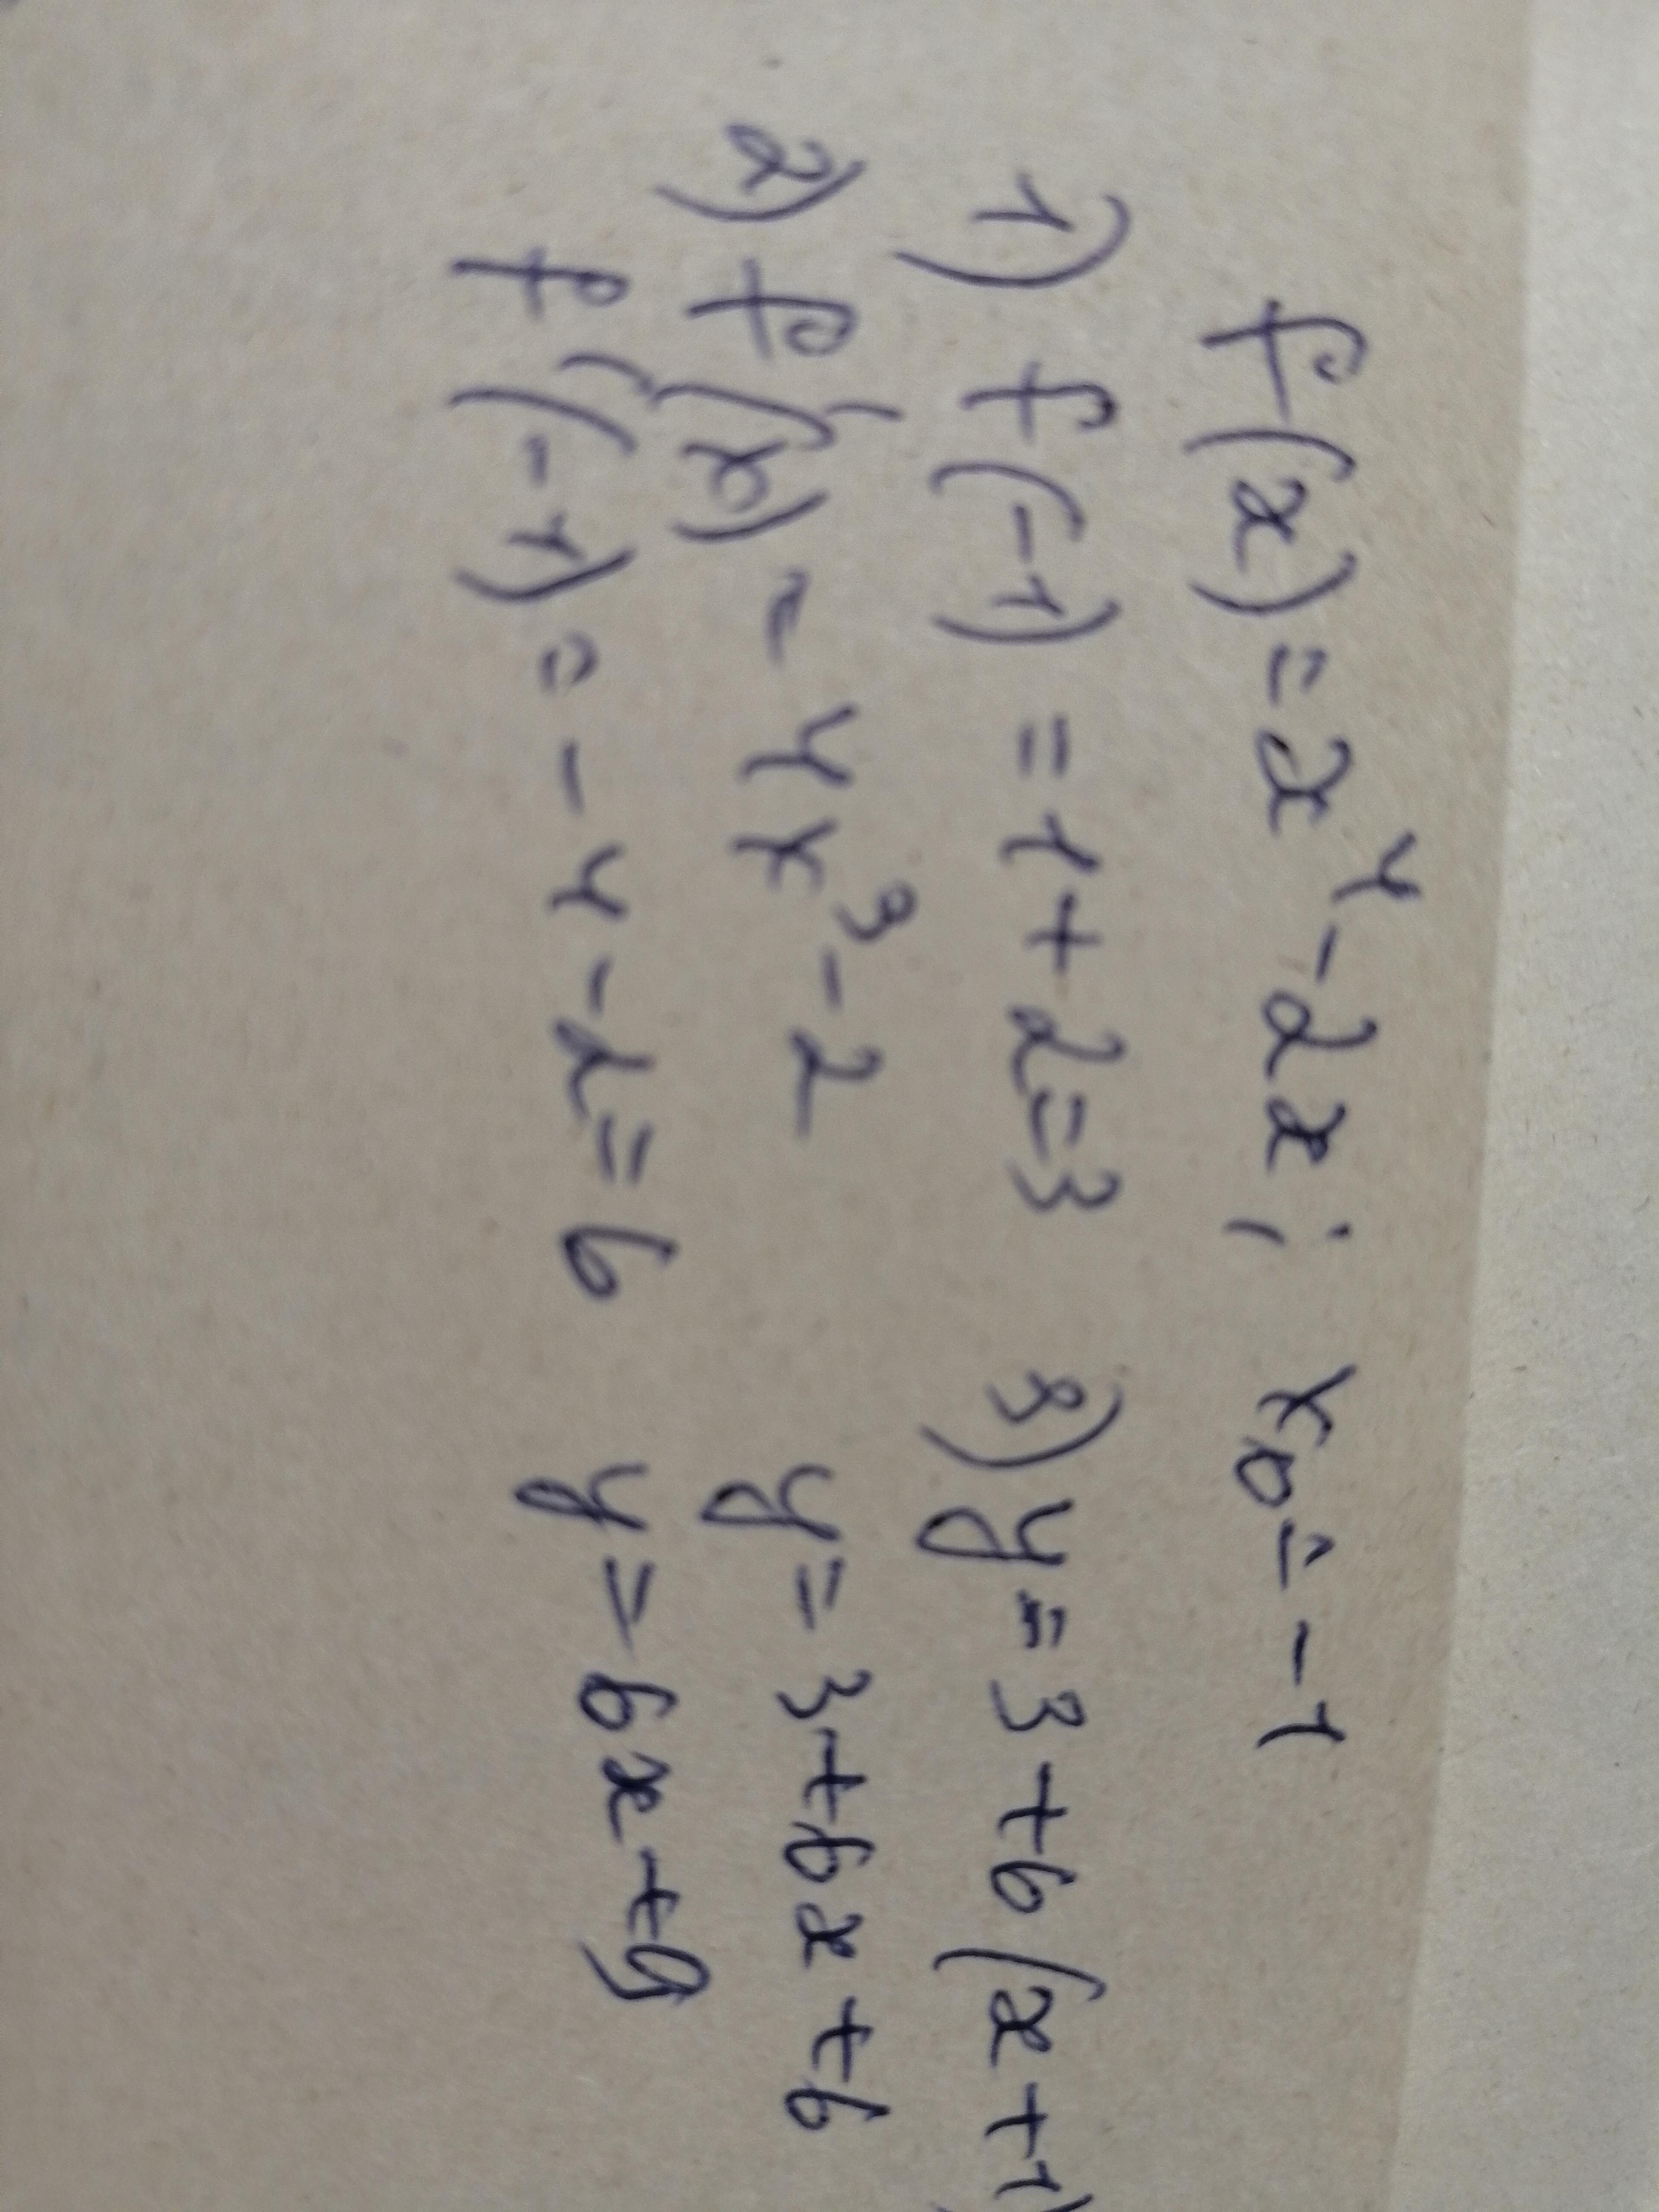 f(x) = x⁴ - 2x; x₀ = -1
1) f(-1) = 1 + 2 = 3
2) f'(x) = 4x³ - 2
f'(-1) = -4 - 2 = 6
3) y = 3 + 6(x + 1)
y = 3 + 6x + 6
y = 6x + 9